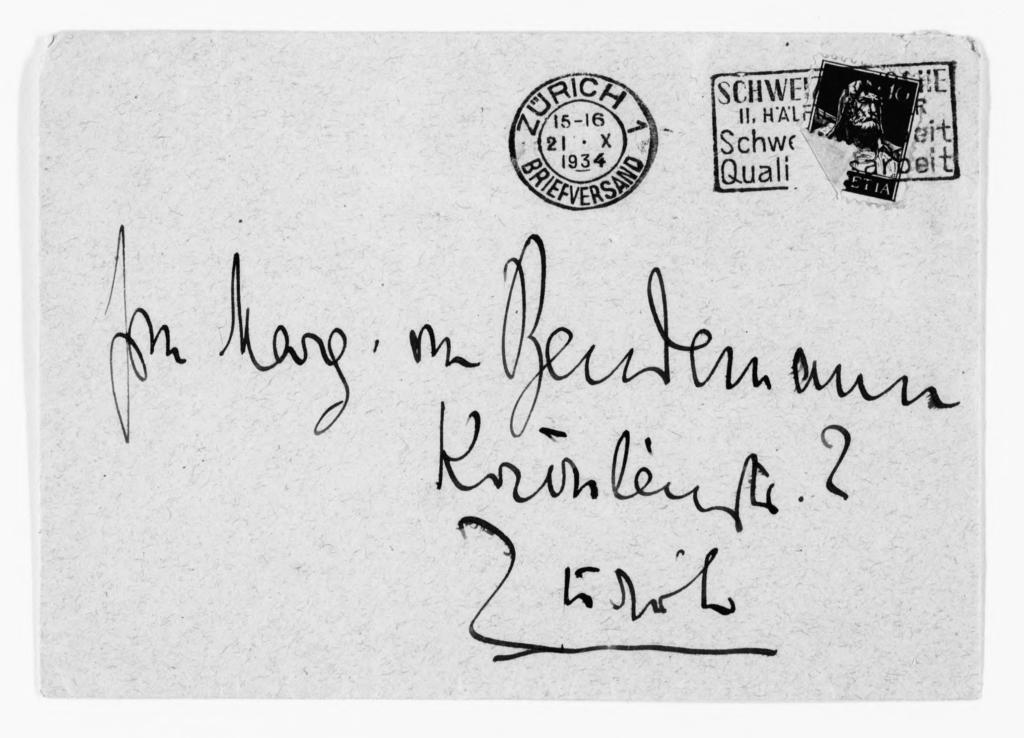 ZÜRICH 1
15-16
21 · X
1934
BRIEFVERSAND
SCHWEI
II. HÄLF
Schwe eit
Quali sarbeit
ETIA
Frau Marg. von Bendemann
2
Zürich